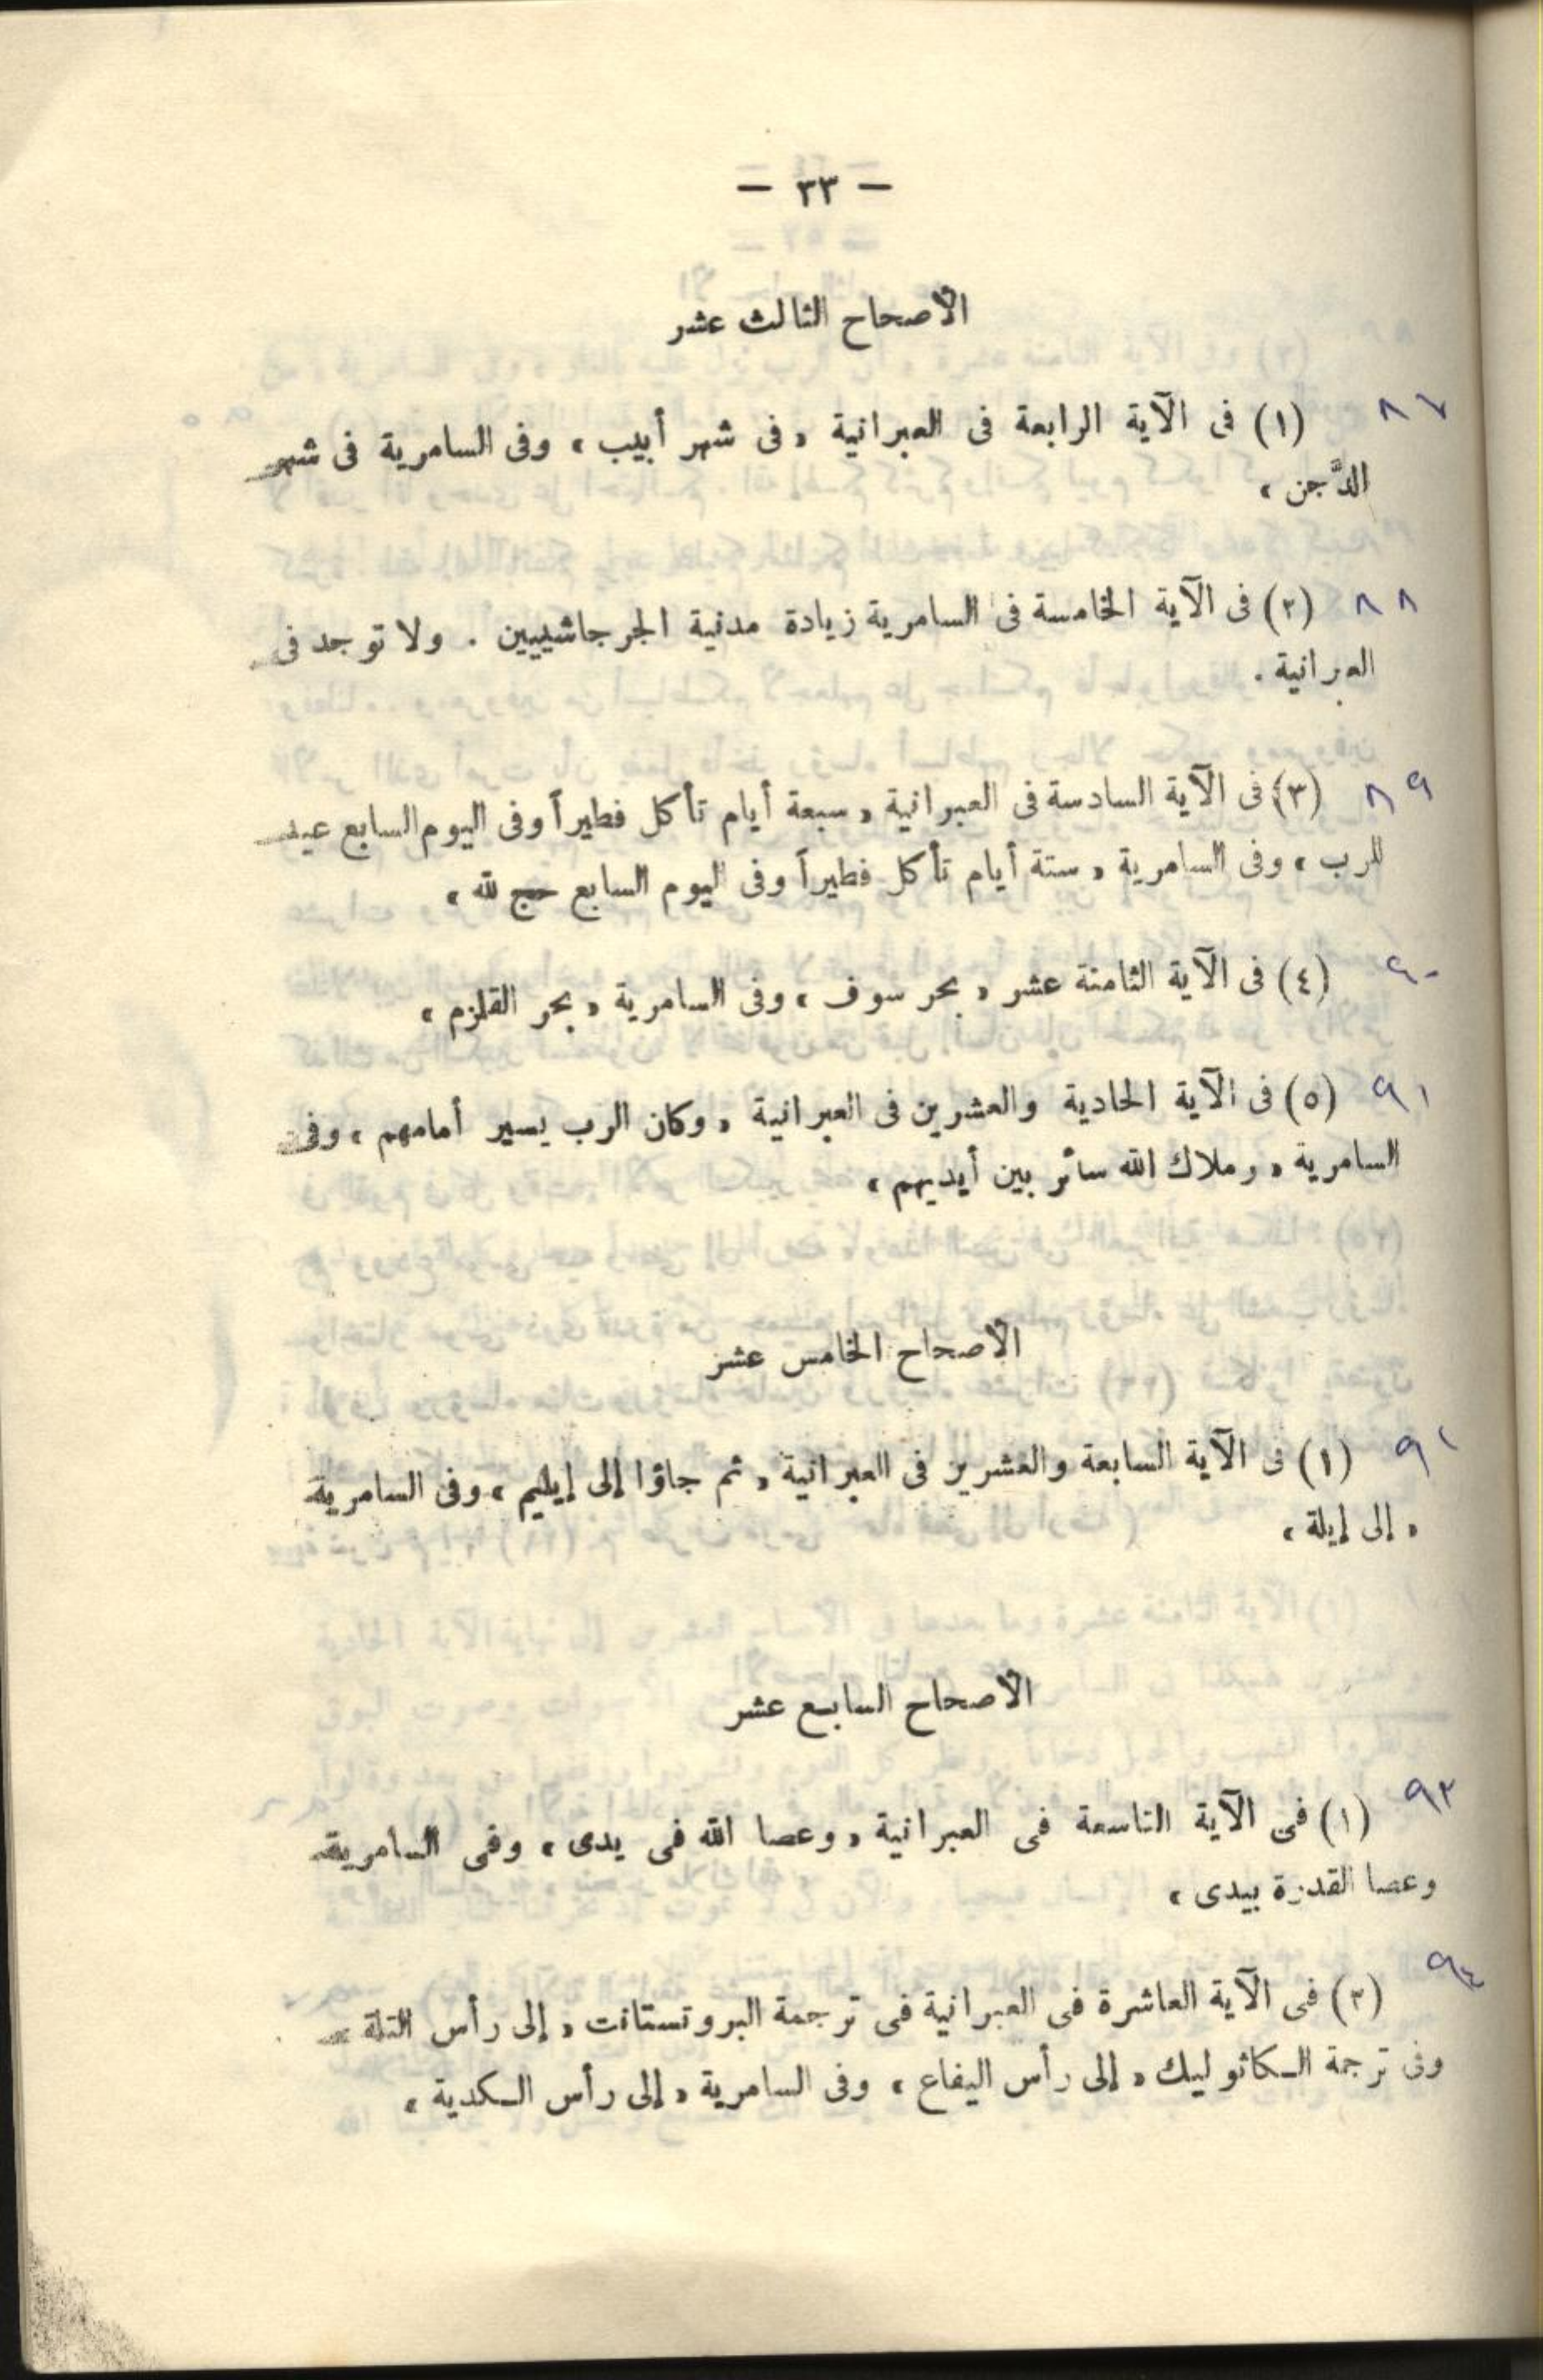 — ٣٣ —
الأصحاح الثالث عشر
٨٧ (١) فى الآية الرابعة فى العبرانية « فى شهر أبيب » وفى السامرية فى شهر
الدَّجن »
٨٨ (٢) فى الآية الخامسة فى السامرية زيادة مدنية الجرجاشيين . ولا توجد فى
العبرانية .
٨٩ (٣) فى الآية السادسة فى العبرانية « سبعة أيام تأكل فطيراً وفى اليوم السابع عيد
للرب » وفى السامرية « ستة أيام تأكل فطيراً وفى اليوم السابع حج لله »
٩٠ (٤) فى الآية الثامنة عشر « بحر سوف » وفى السامرية « بحر القلزم »
٩١ (٥) فى الآية الحادية والعشرين فى العبرانية « وكان الرب يسير أمامهم » وفى
السامرية « وملاك الله سائر بين أيديهم »
الأصحاح الخامس عشر
٩٢ (١) فى الآية السابعة والعشرين فى العبرانية « ثم جاؤا إلى إيليم » وفى السامرية
« إلى إيلة »
الأصحاح السابع عشر
٩٣ (١) فى الآية التاسعة فى العبرانية « وعصا الله فى يدى » وفى السامرية
وعصا القدرة بيدى »
٩٤ (٢) فى الآية العاشرة فى العبرانية فى ترجمة البروتستانت « إلى رأس التلة »
وفى ترجمة الكاثوليك « إلى رأس اليفاع » وفى السامرية « إلى رأس الكدية »